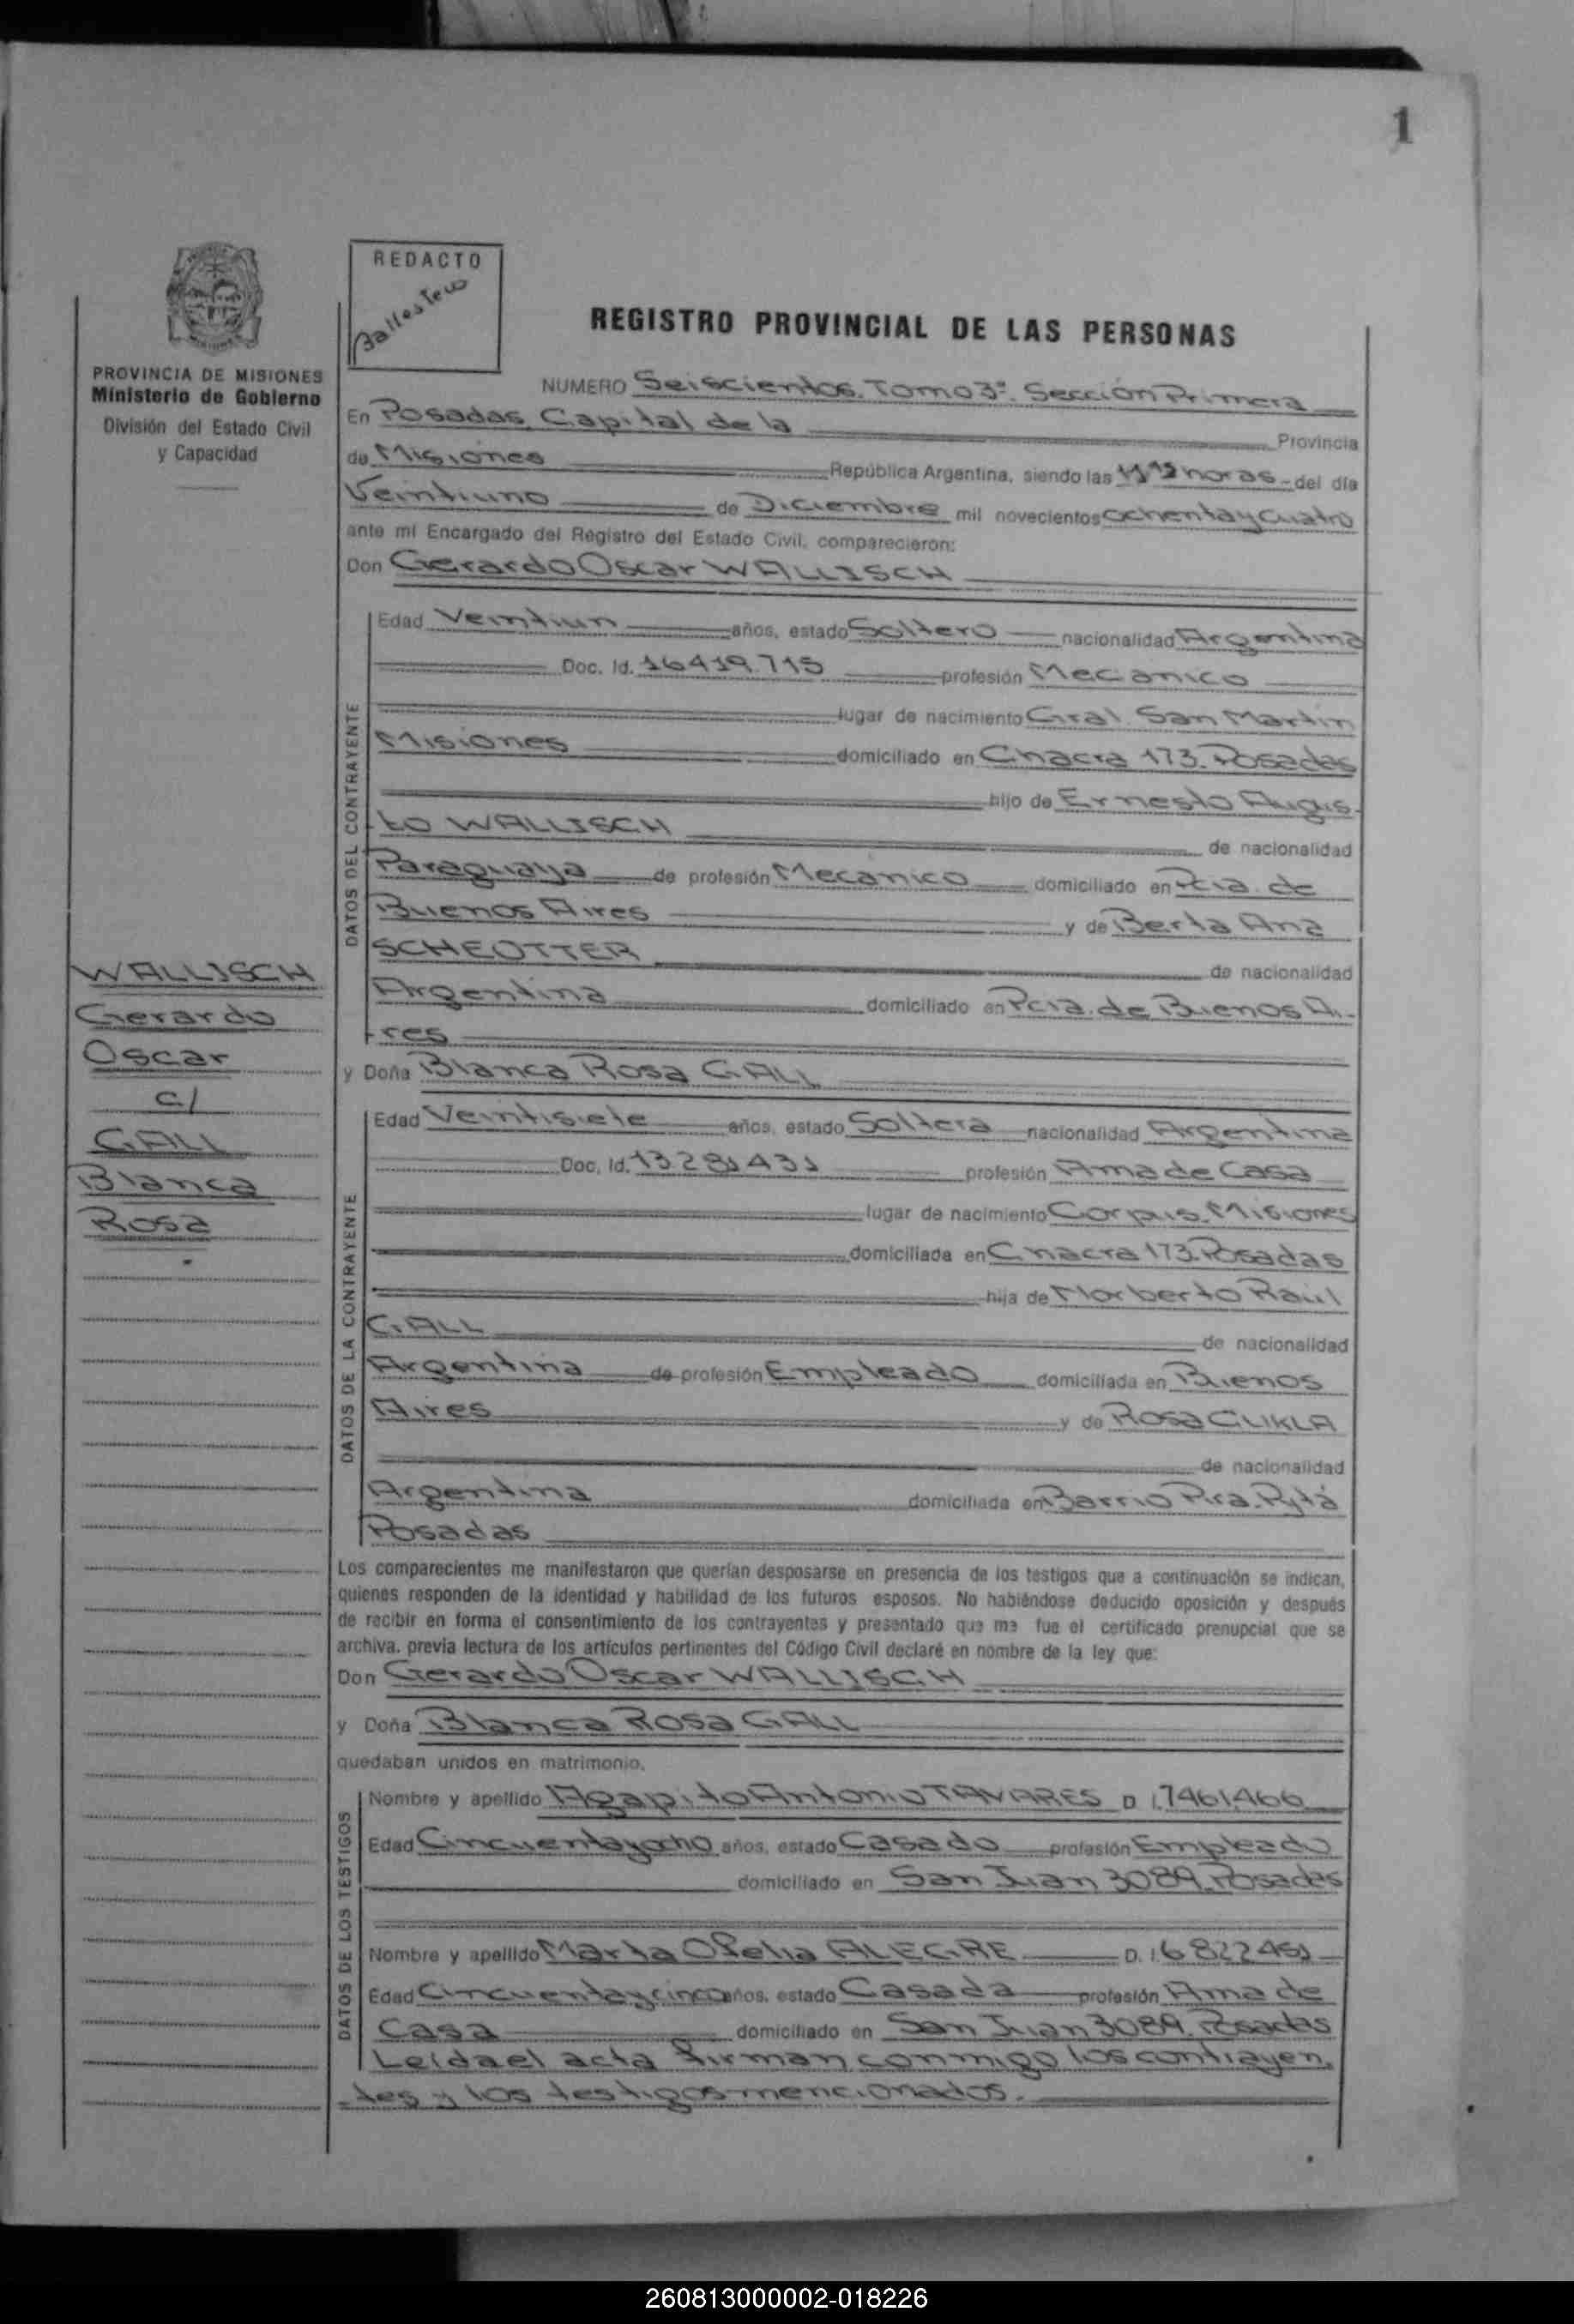 1
REDACTO
Ballestero
REGISTRO PROVINCIAL DE LAS PERSONAS
PROVINCIA DE MISIONES
Ministerio de Gobierno
División del Estado Civil
y Capacidad
NUMERO Seiscientos. Tomo 3º. Sección Primera
En Posadas, Capital de la Provincia
de Misiones República Argentina, siendo las 11 15 horas - del día
Veintiuno de Diciembre mil novecientos ochenta y cuatro
ante mí Encargado del Registro del Estado Civil, comparecieron:
Don Gerardo Oscar WALLISCH
DATOS DEL CONTRAYENTE
Edad Veintiun años, estado Soltero nacionalidad Argentina
Doc. Id. 16419.715 profesión Mecanico
lugar de nacimiento Gral. San Martin
Misiones domiciliado en Chacra 173. Posadas
hijo de Ernesto Augus-
to WALLISCH de nacionalidad
Paraguaya de profesión Mecanico domiciliado en Pcia. de
Buenos Aires y de Berta Ana
SCHEOTTER de nacionalidad
Argentina domiciliado en Pcia. de Buenos Ai-
res
WALLISCH
Gerardo
Oscar
c/
GALL
Blanca
Rosa
y Doña Blanca Rosa GALL
DATOS DE LA CONTRAYENTE
Edad Veintisiete años, estado Soltera nacionalidad Argentina
Doc. Id. 13281431 profesión Ama de Casa
lugar de nacimiento Corpus. Misiones
domiciliada en Chacra 173. Posadas
hija de Norberto Raul
GALL de nacionalidad
Argentina de profesión Empleado domiciliada en Buenos
Aires y de Rosa GLIKLA
de nacionalidad
Argentina domiciliada en Barrio Pira. Pytá
Posadas
Los comparecientes me manifestaron que querían desposarse en presencia de los testigos que a continuación se indican,
quienes responden de la identidad y habilidad de los futuros esposos. No habiéndose deducido oposición y después
de recibir en forma el consentimiento de los contrayentes y presentado que me fue el certificado prenupcial que se
archiva. previa lectura de los artículos pertinentes del Código Civil declaré en nombre de la ley que:
Don Gerardo Oscar WALLISCH
y Doña Blanca Rosa GALL
quedaban unidos en matrimonio.
DATOS DE LOS TESTIGOS
Nombre y apellido Agapito Antonio TAVARES D I. 7461.466
Edad Cincuenta y ocho años, estado Casado profesión Empleado
domiciliado en San Juan 3089. Posadas
Nombre y apellido Marta Ofelia ALEGRE D. I. 6822451
Edad Cincuenta y cinco años, estado Casada profesión Ama de
Casa domiciliado en San Juan 3089. Posadas
Leida el acta firman conmigo los contrayen-
-tes y los testigos mencionados.
260813000002-018226